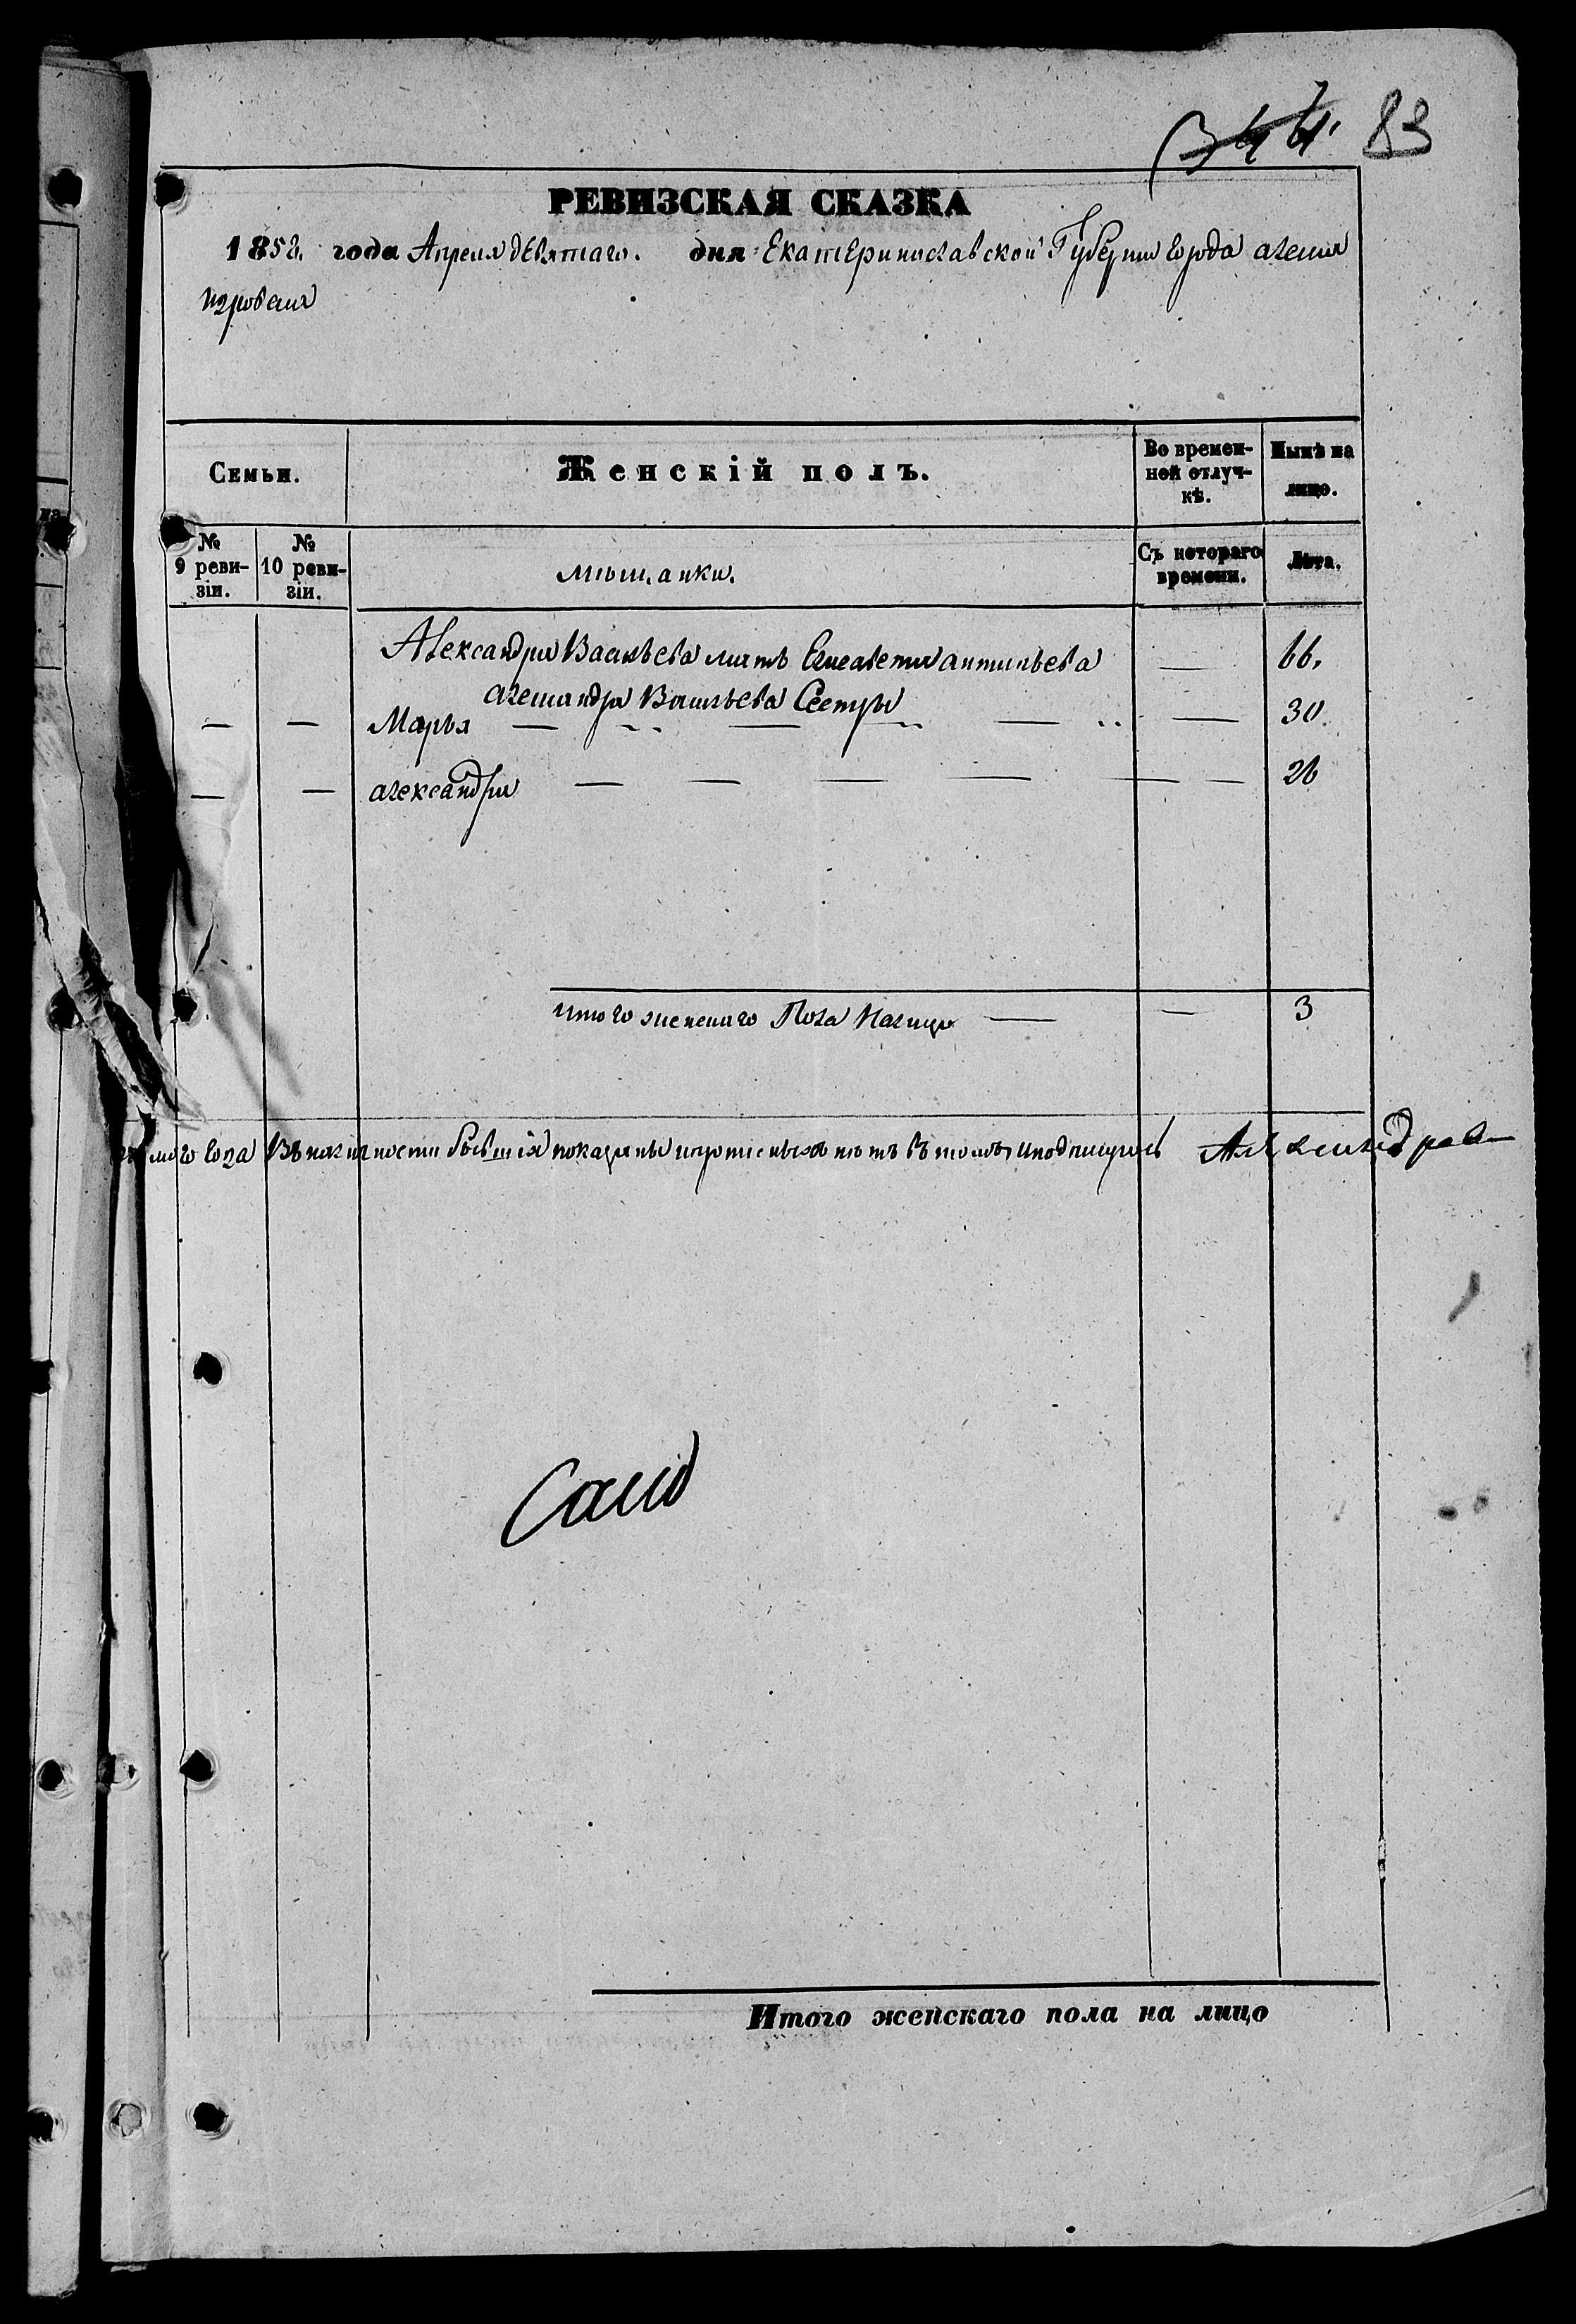 344. 83
РЕВИЗСКАЯ СКАЗКА
1858. года Апреля девятаго. дня Екатеринославской Губернии города
Семьи.
Женскій полъ.
Во времен-
ной отлуч-
кѣ.
Нынѣ на
лицо.
№
9 реви-
зіи.
№
10 реви-
зіи.
мѣщанки.
Съ котораго
времени.
Лѣта.
Александра Васильева мать Елисавета антипьева — 66.
александра Васильева Сестры
— — Марья — „ — „ — „ — 30.
— — александра — — — — — — 26
итого женскаго Пола Налицо — — 3
мого года Въ наличности бывшія показаны и прописныхъ нетъ въ томъ и подписуюсь Александра
Итого женскаго пола на лицо